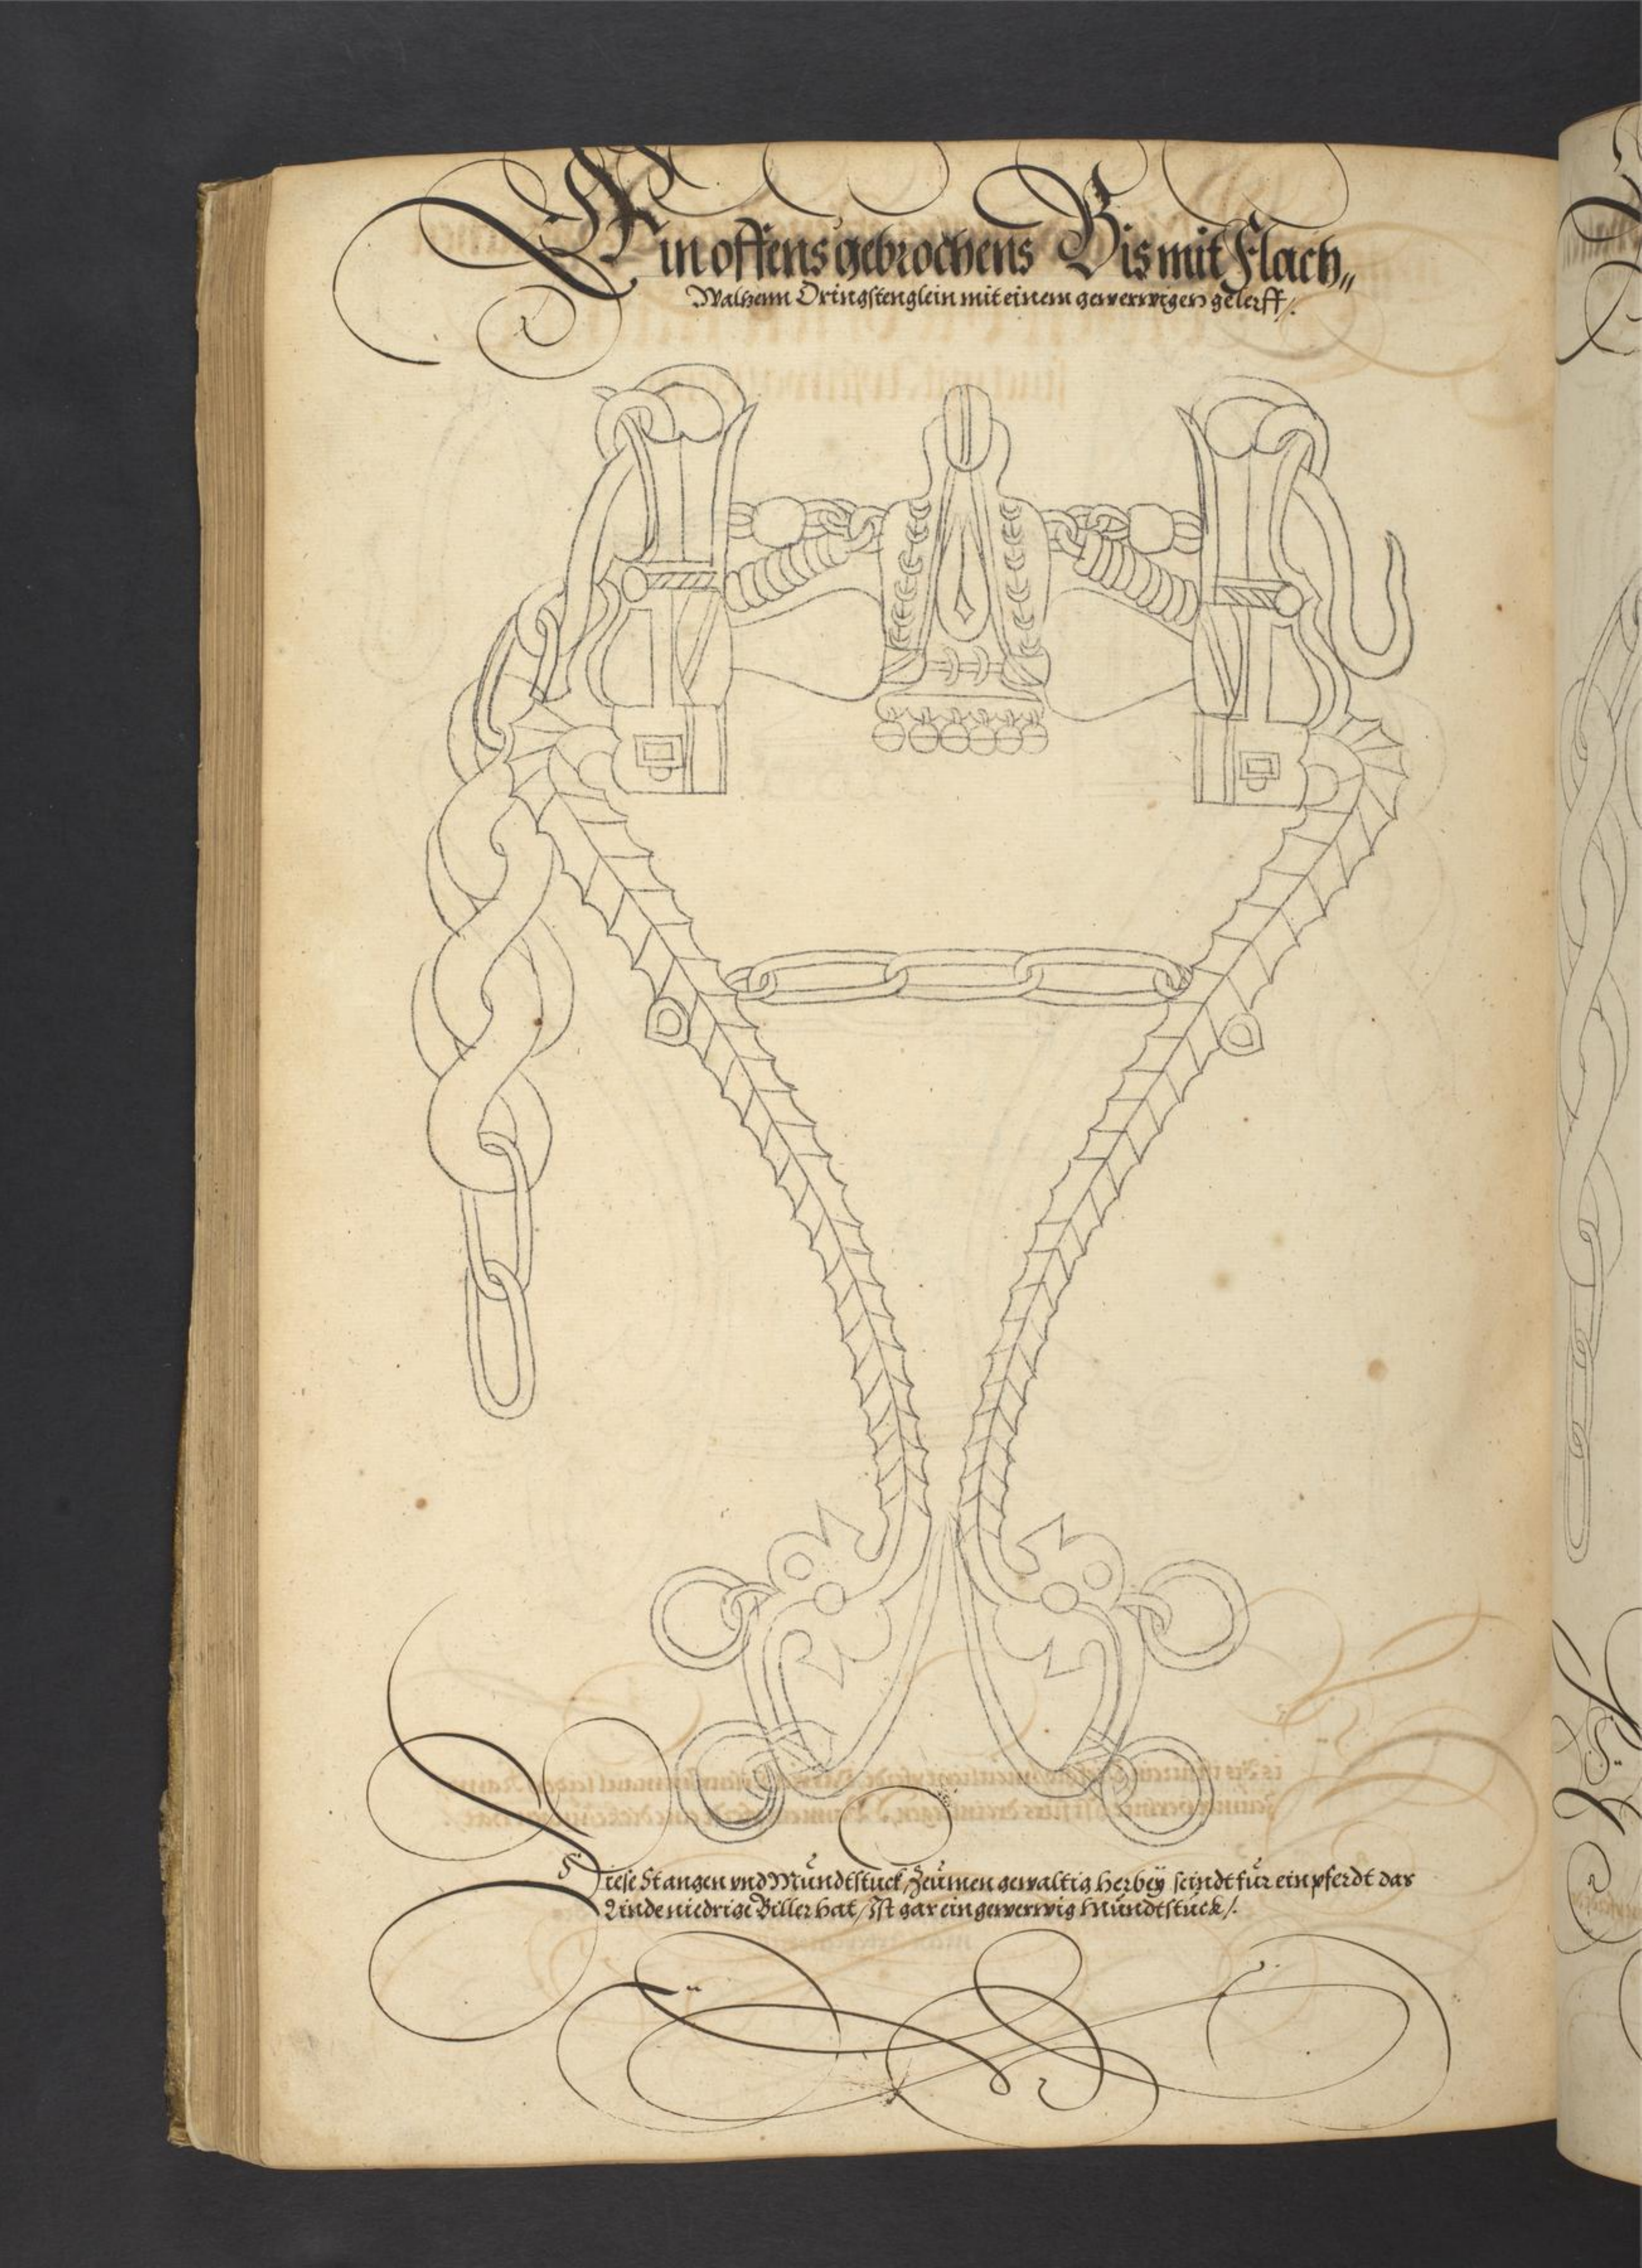 Ein offens gebrochens Bis mit Flach„
Walzenn Oringstenglein mit einem gewerwigen gelerff/.
Diese Stangen vnd Mundtstuck, Zeümen gewaltig herbeÿ seindt für ein pferdt das
Linde niedrige Biller hat, Ist gar ein gewerwig Mundtstück/.